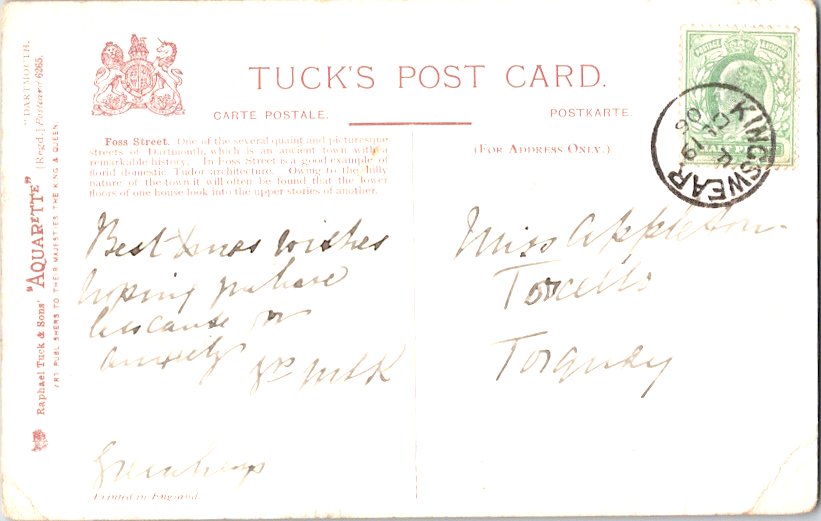 TUCK'S POST CARD.
CARTE POSTALE.
POSTKARTE.
(FOR ADDRESS ONLY.)
"DARTMOUTH.
[Regd.] Postcard 6265.
Raphael Tuck & Sons' "AQUARETTE"
ART PUBLISHERS TO THEIR MAJESTIES THE KING & QUEEN.
Foss Street. One of the several quaint and picturesque
streets of Dartmouth, which is an ancient town with a
remarkable history. In Foss Street is a good example of
florid domestic Tudor architecture. Owing to the hilly
nature of the town it will often be found that the lower
floors of one house look into the upper stories of another.
Best Xmas wishes
hoping you have
less cause for
anxiety
Printed in England.
Miss Appleton
Torcello
Torquay
POSTAGE
HALF PENNY
KINGSWEAR
06